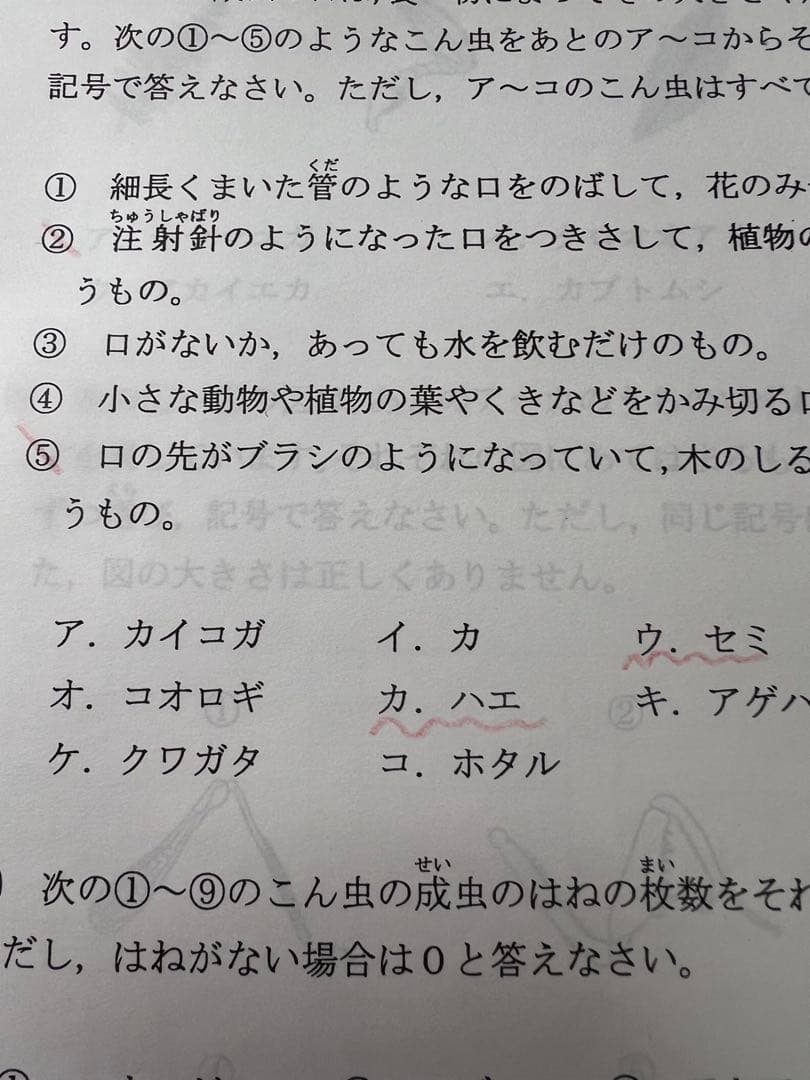 す。次の①～⑤のようなこん虫をあとのア～コからそ
記号で答えなさい。ただし，ア～コのこん虫はすべて
① 細長くまいた管のような口をのばして，花のみ
くだ
ちゅうしゃばり
② 注射針のようになった口をつきさして，植物の
うもの。
③ 口がないか，あっても水を飲むだけのもの。
④ 小さな動物や植物の葉やくきなどをかみ切る口
⑤ 口の先がブラシのようになっていて，木のしる
うもの。
ア．カイコガ イ．カ ウ．セミ
オ．コオロギ カ．ハエ キ．アゲハ
ケ．クワガタ コ．ホタル
せい まい
次の①～⑨のこん虫の成虫のはねの枚数をそれ
だし，はねがない場合は０と答えなさい。